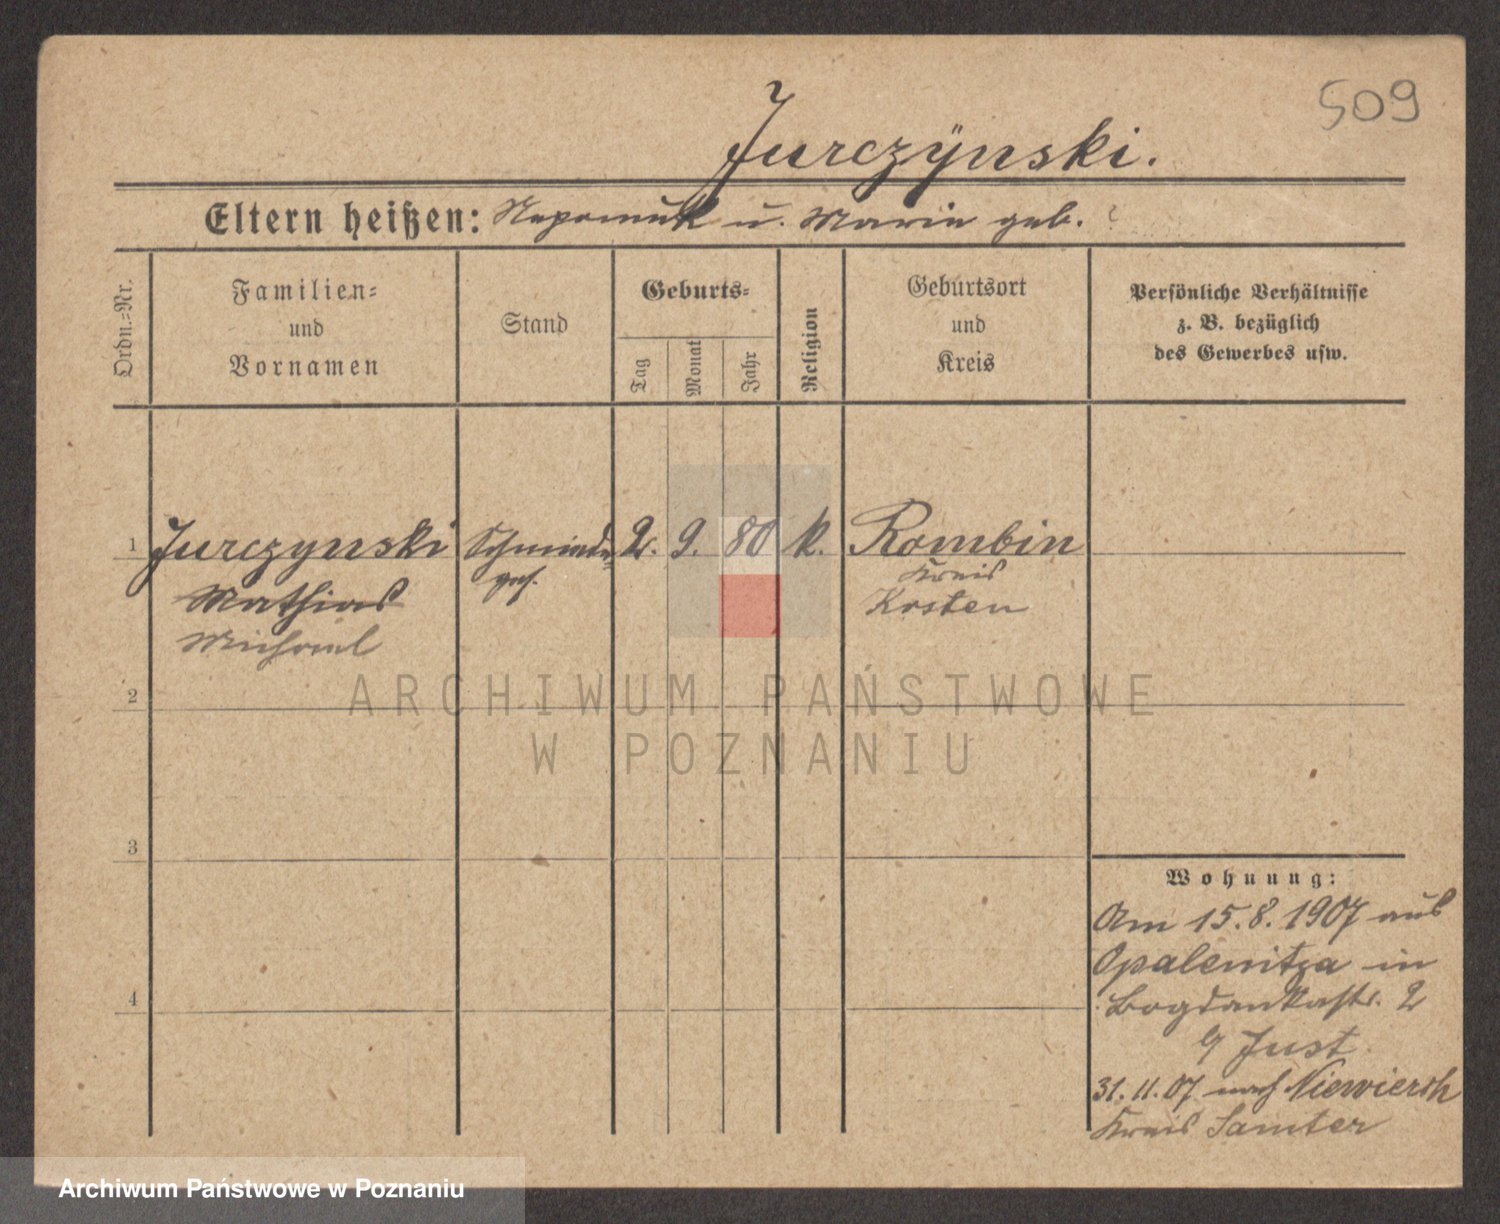 509
Jurczÿnski.
Eltern heißen: Nepomuk u. Marie geb. ?
Ordn.=Nr.
Familien=
und
Vornamen
Stand
Geburts=
Tag
Monat
Jahr
Religion
Geburtsort
und
Kreis
Persönliche Verhältnisse
z. B. bezüglich
des Gewerbes usw.
1 Jurczynski Schmiede= 2. 9. 80 k. Rombin
ges. Kreis
Mathias Kosten
Michael
2
ARCHIWUM PAŃSTWOWE
W POZNANIU
3
Wohnung:
Am 15.8.1907 aus
Opalenitza in
Bogdankastr. 2
b/ Just
4
31.11.07 nach Niewiersch
Kreis Samter
Archiwum Państwowe w Poznaniu